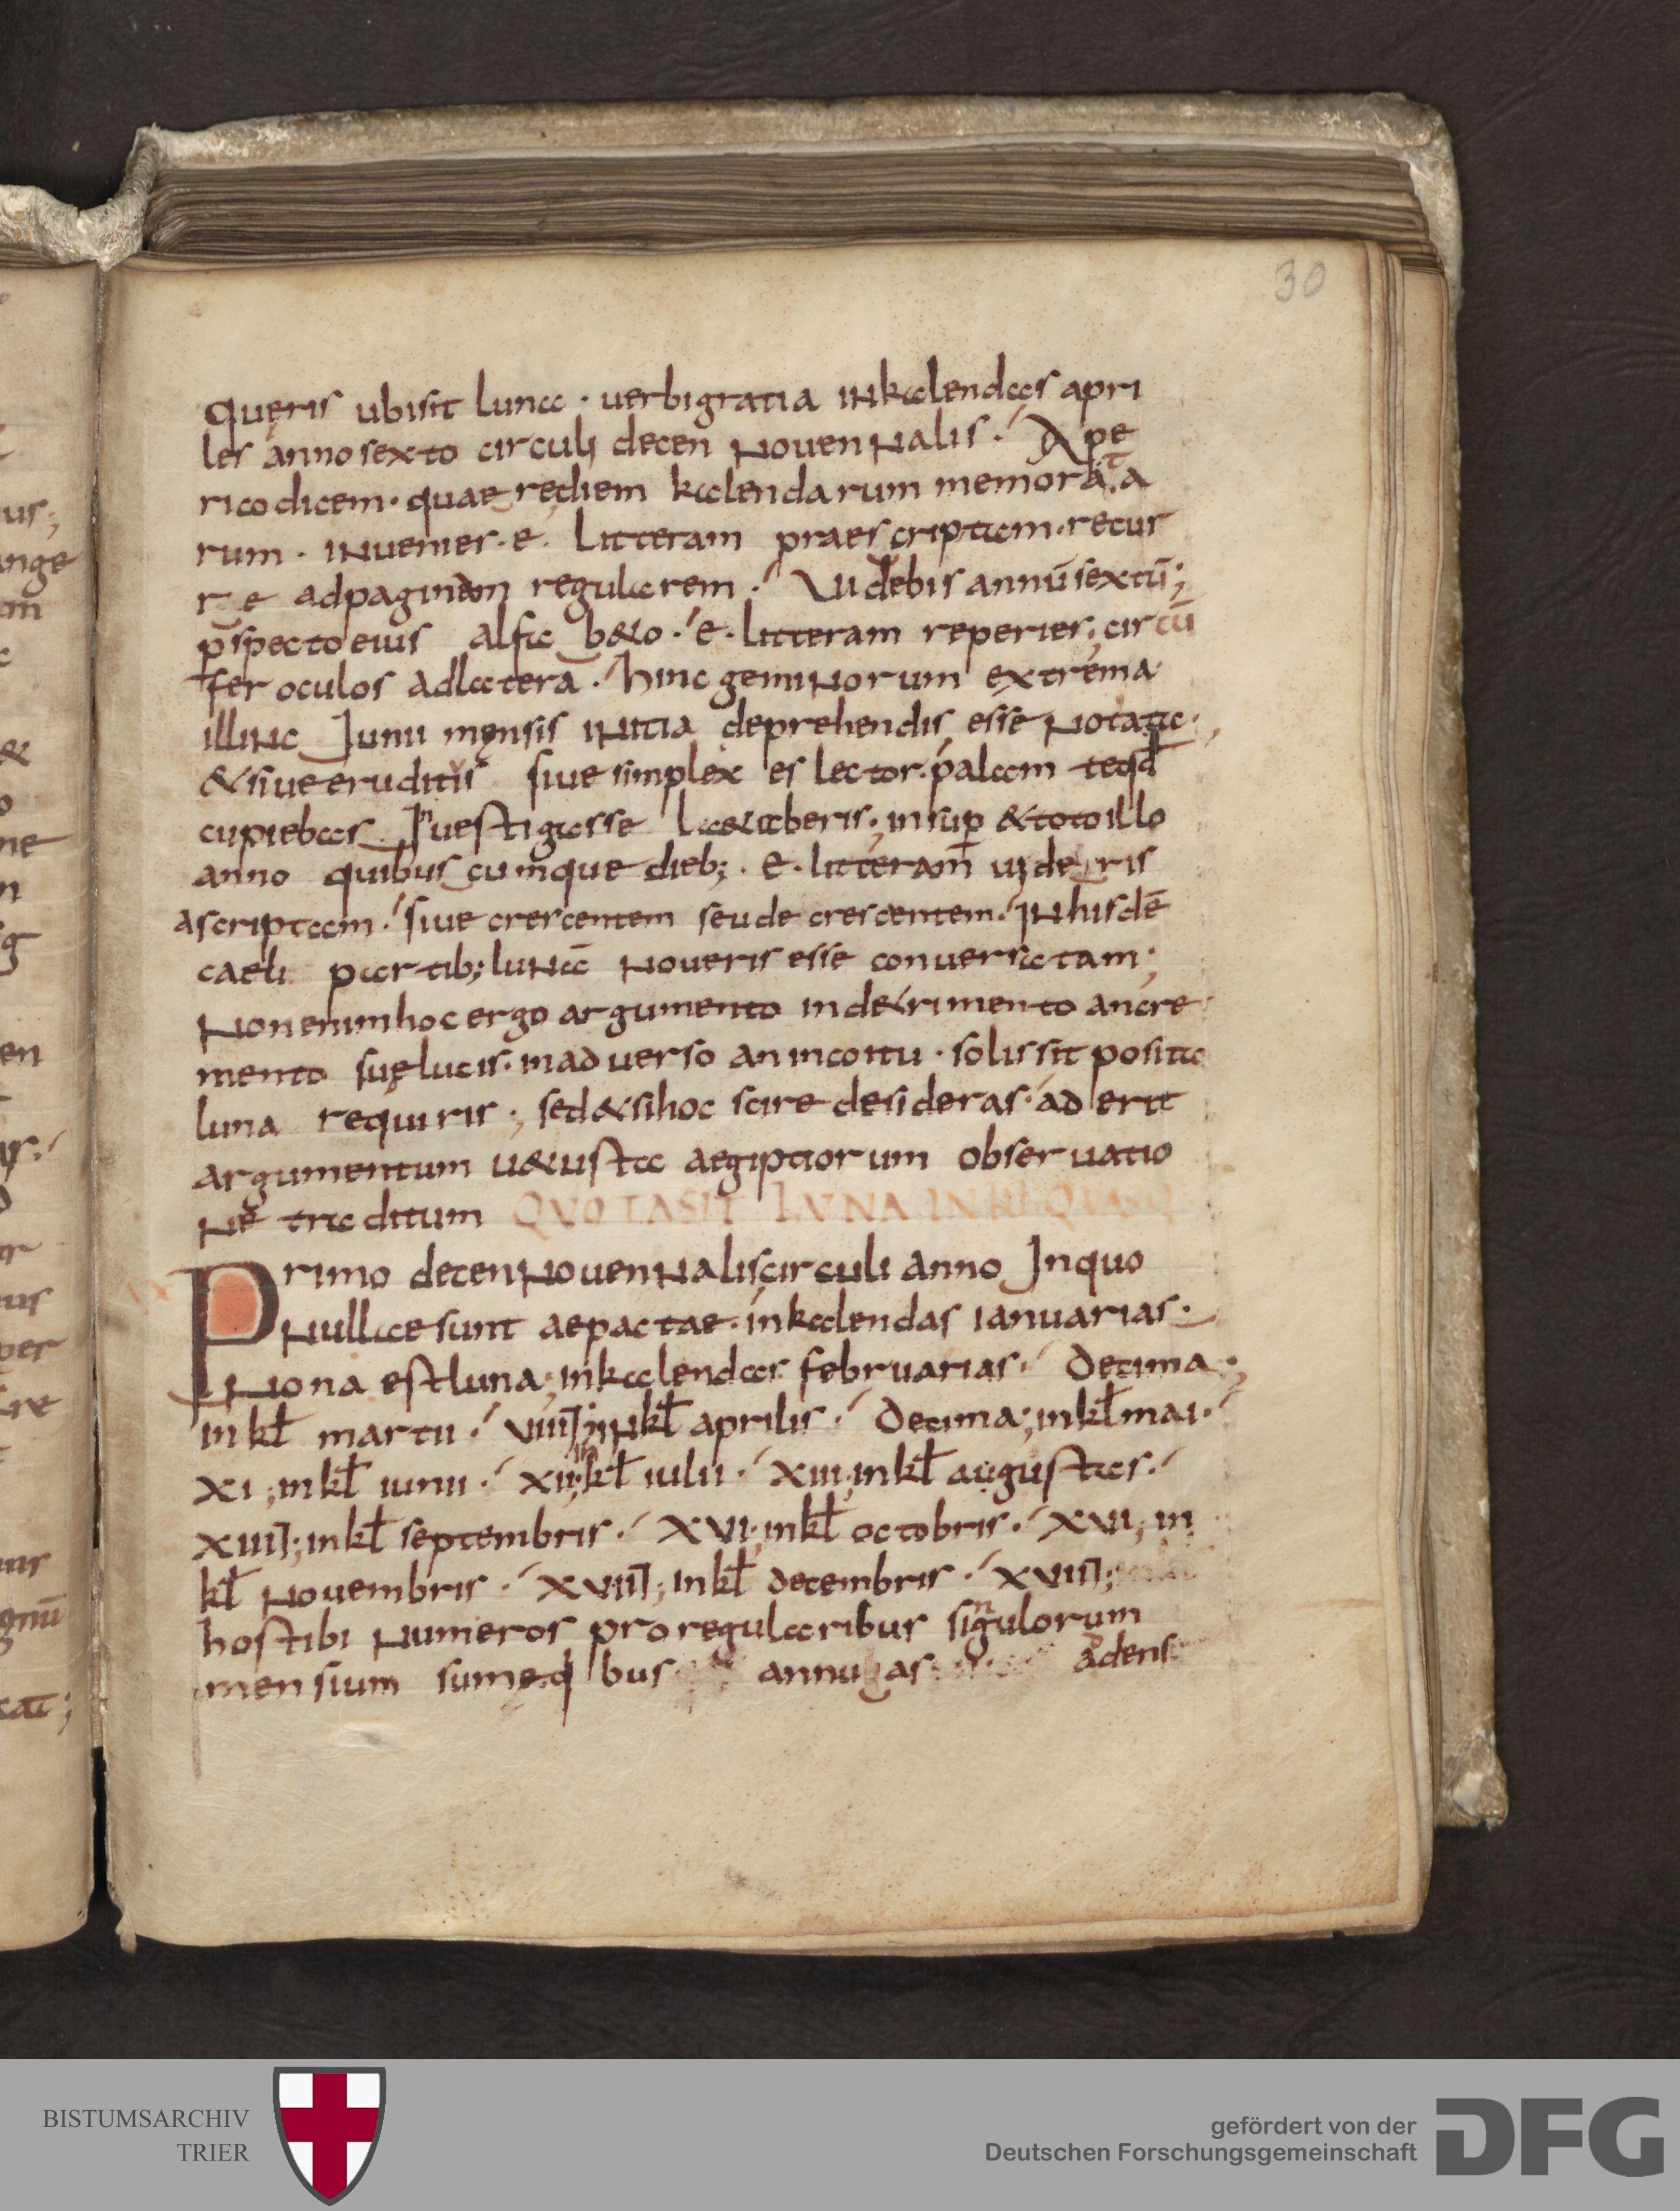 30
queris ubisit luna · uerbigratia inkalendas apri
les anno sexto circuli decennouennalis · Ape
ri codicem · quae rediem kalendarum memorata
rum · inuenies · e · litteram praescriptam · recur
re adpaginam regularem · Uidebis annū sextū;
p̄specto eius alfa b&o · e · litteram reperies; circū
fer oculos adlaterā · hinc geminorum extrema
illinc Junii mensis initia deprehendis esse notata ·
& siue eruditus siue simplex es lector · palam te qd̄
cupiebas Inuestigasse la&aberis; insup & toto illo
anno quibuscumque dieb; · e · litteram uideris
ascriptam · siue crescentem seu decrescentem · Inhisdē
caeli partib; lunā noueris esse conuersatam;
Nonenim hoc ergo argumento inde&rimento ancre
mento suę lucis · inaduerso anincoitu · solis sit posita
luna requiris; sed & sihoc scire desideras · aderit
argumentum u&usta aegiptiorum obseruatio
ne traditum QUOTA SIT LUNA IN KL̄
Primo decennouennalis circuli anno Inquo
nullae sunt aepactae · inkalendas ianuarias ·
Nona est luna; inkalendas februarias · decima;
in kl̄ martii · VIIII; in kl̄ aprilis · decima; in kl̄ mai ·
XI; in kl̄ iunii · XII; in kl̄ iulii · XIII; in kl̄ augustas ·
XIIII; in kl̄ septembris · XVI; in kl̄ octobris · XVI; in
kl̄ nouembris · XVIII; in kl̄ decembris · XVIII;
hos tibi numeros pro regularibus singulorum
mensium sume q bus annu as adens
BISTUMSARCHIV
TRIER
gefördert von der
Deutschen Forschungsgemeinschaft
DFG